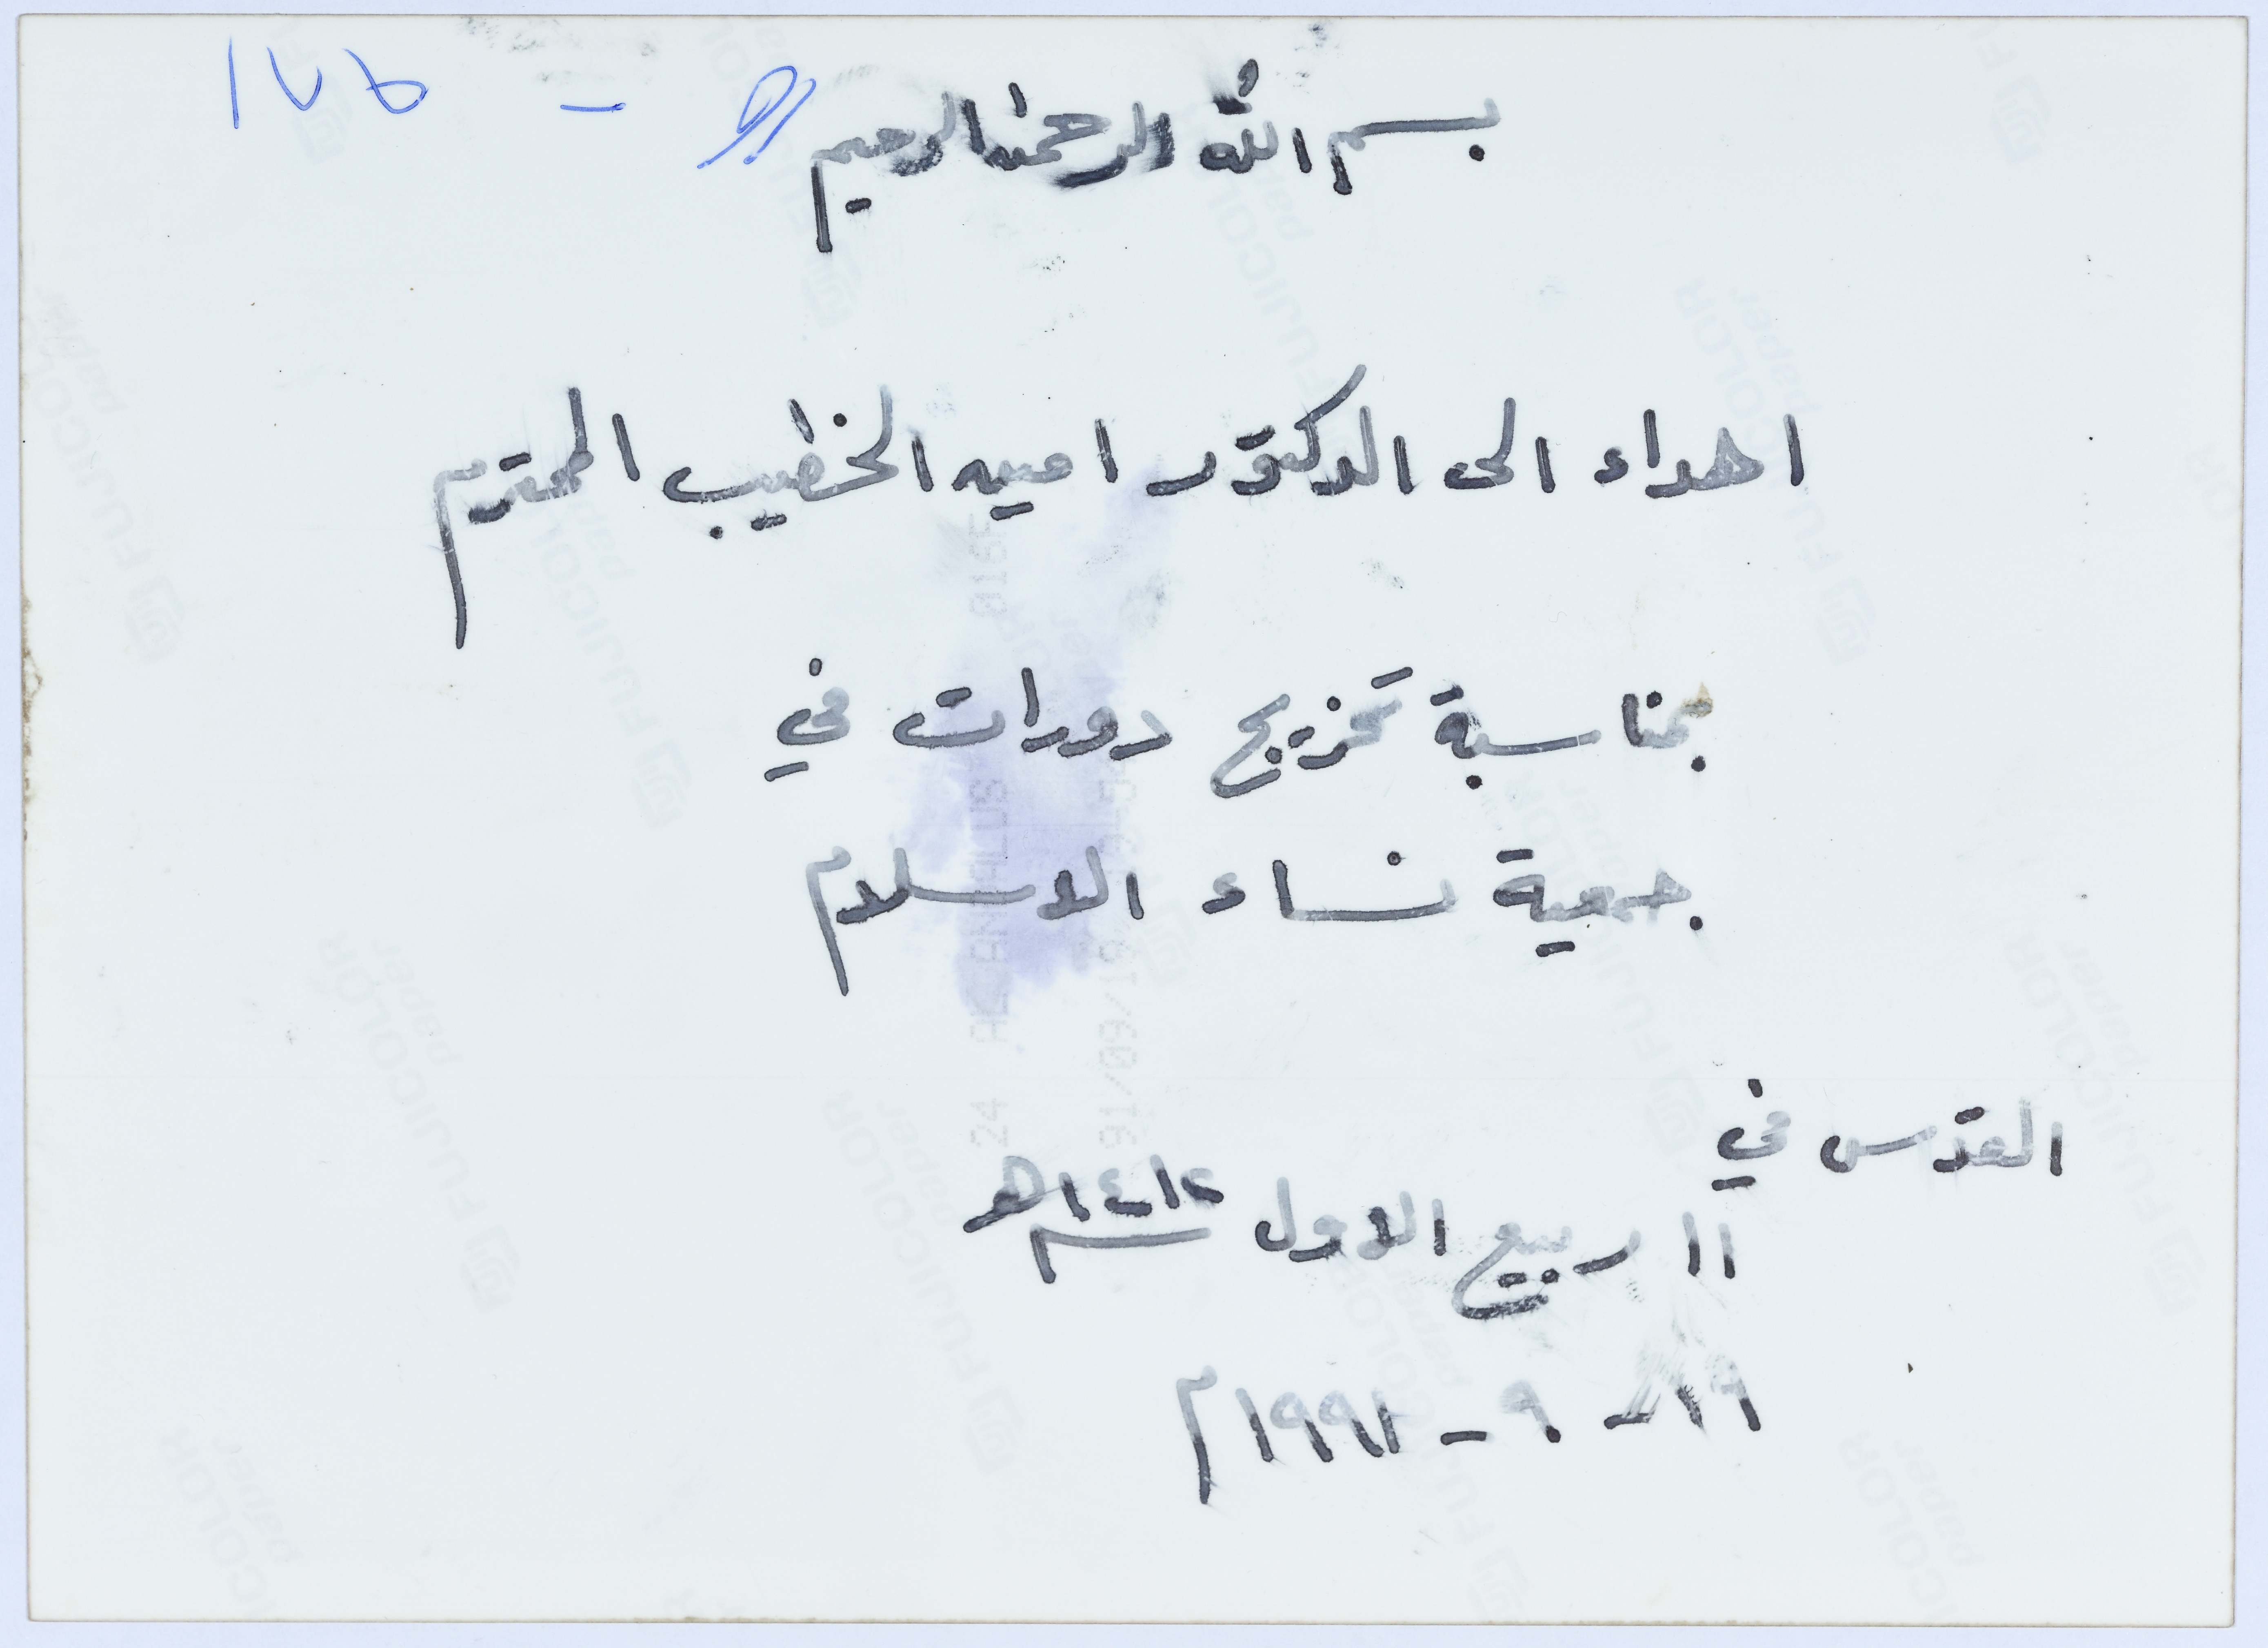 بسم الله الرحمن الرحيم
اهداء الى الدكتور امين الخطيب المحترم
بمناسبة تخريج دورات في
جمعية نساء الاسلام
القدس في
١١ ربيع الاول ١٤١٢ هـ
١٩ - ٩ - ١٩٩١ م
24 AL ANDALUS
91/09/19
FUJICOLOR paper